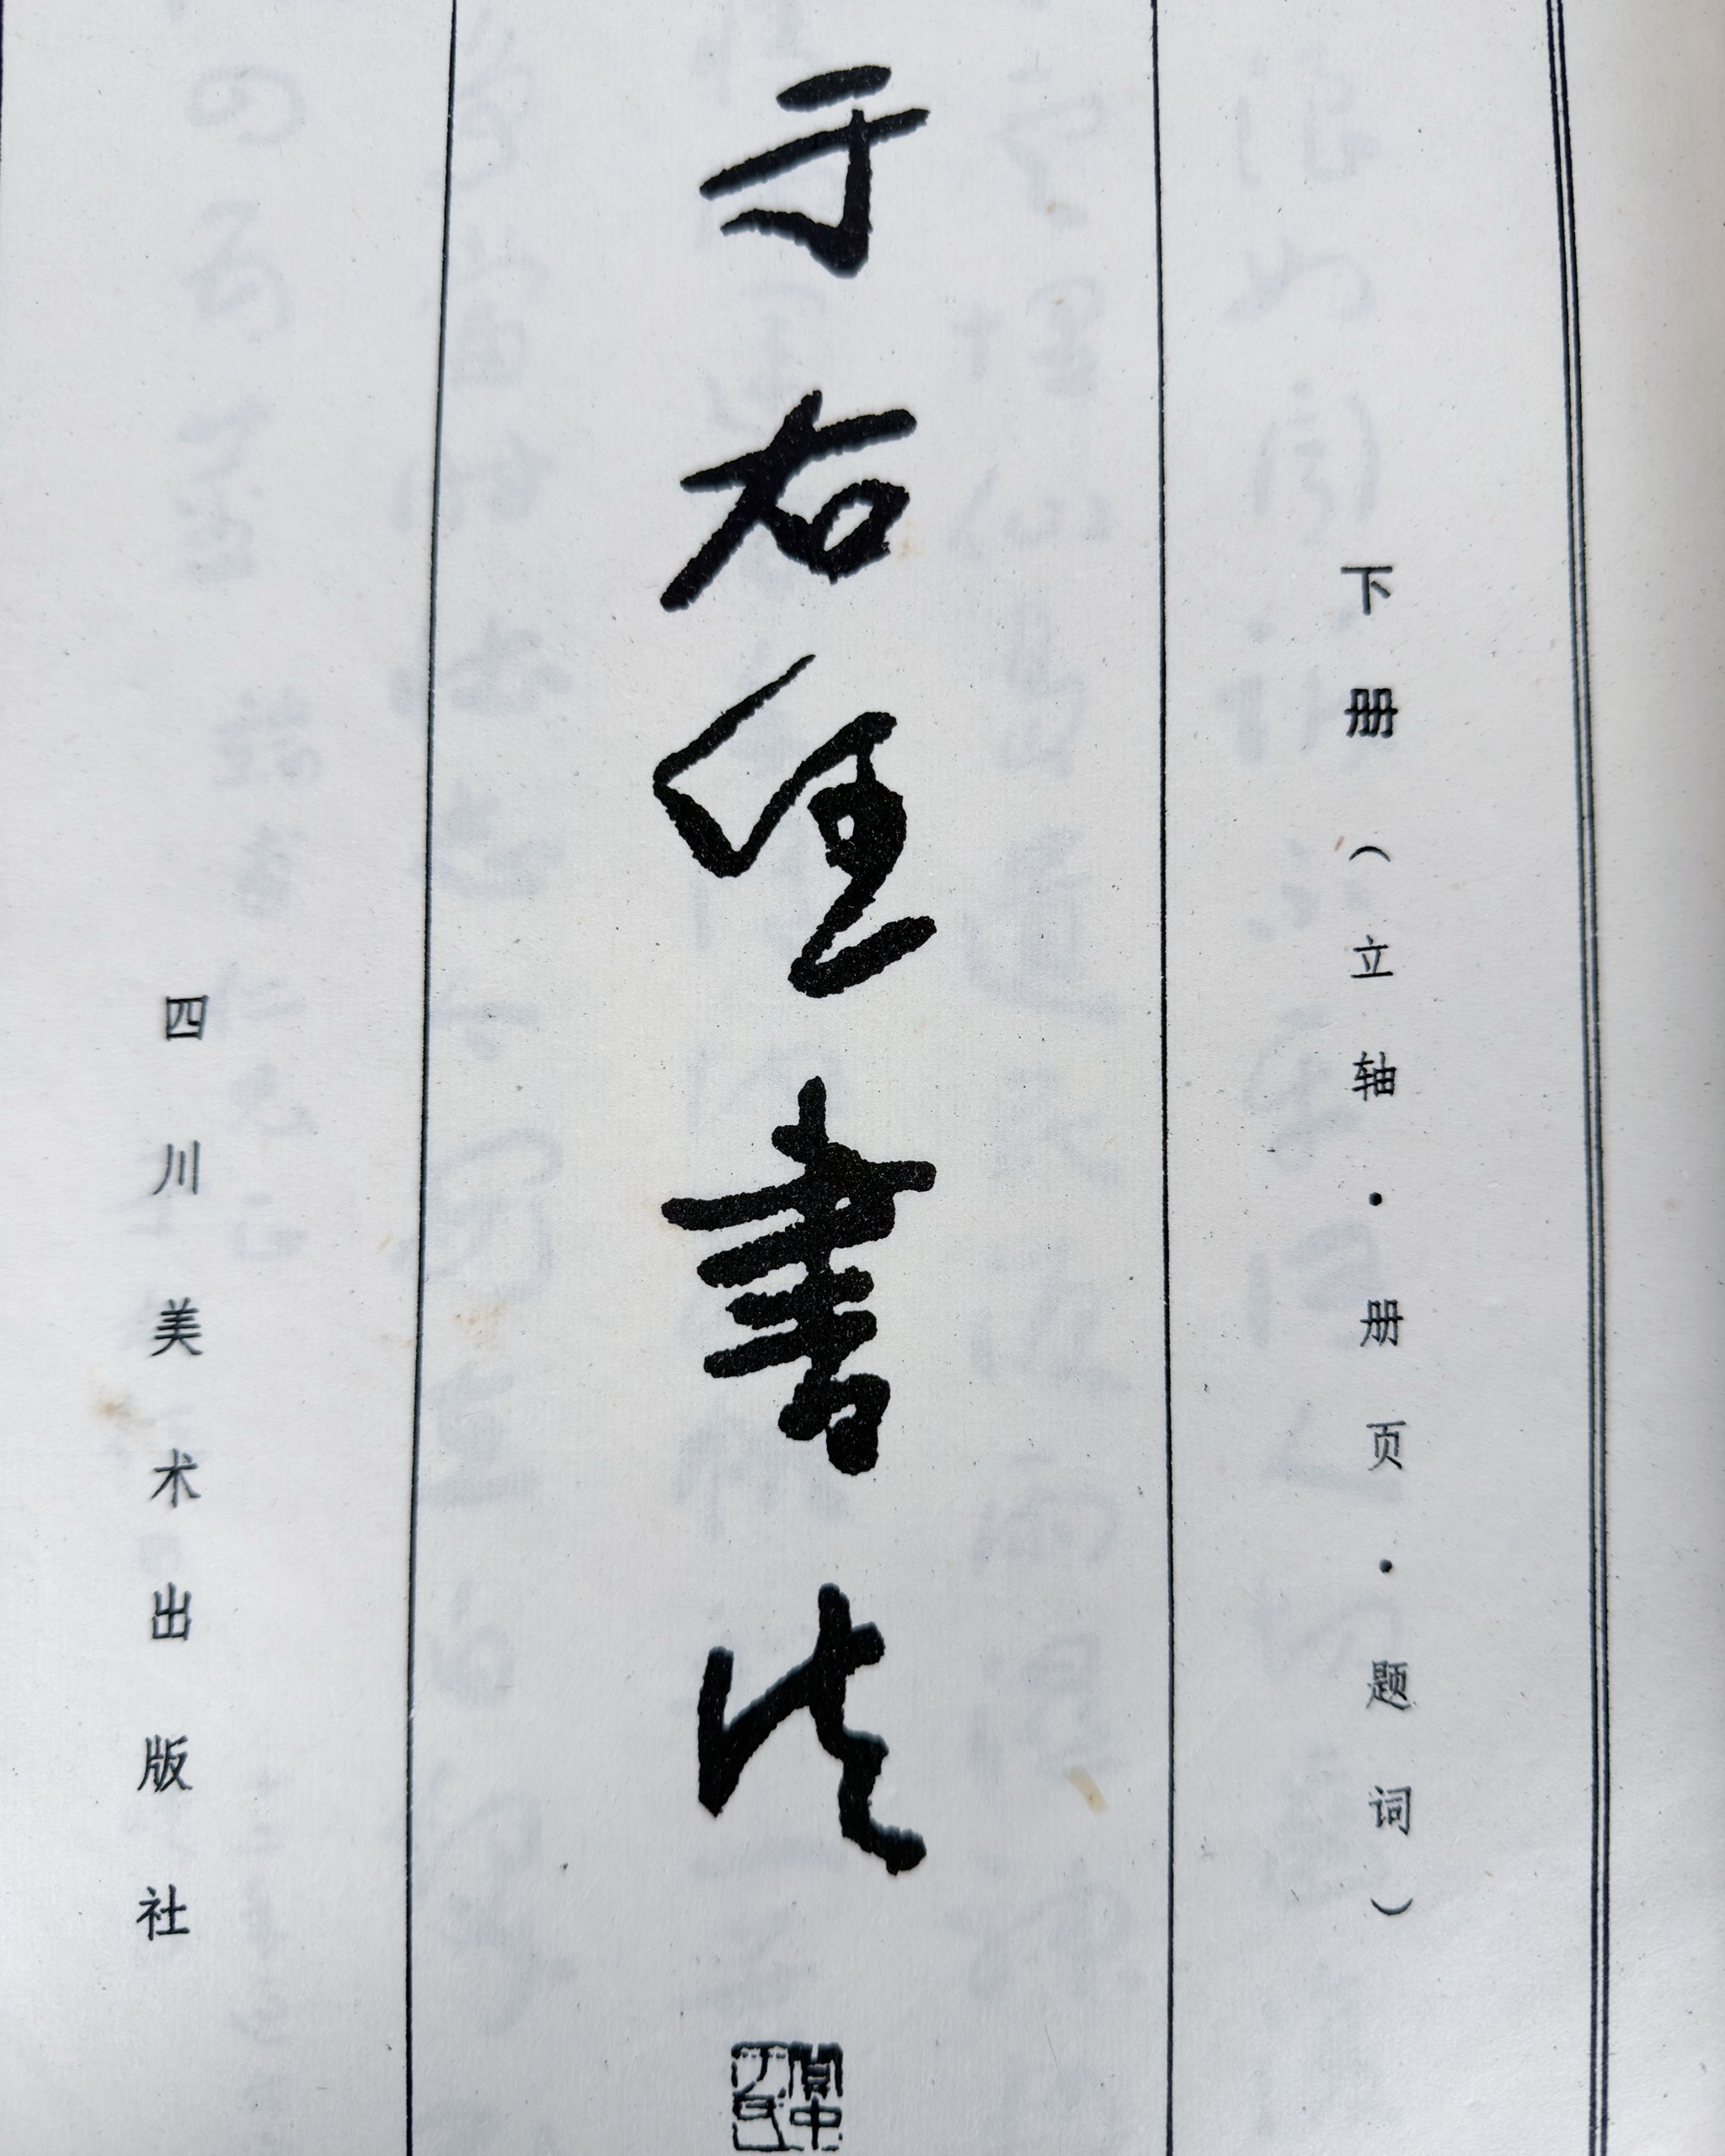 下册（立轴·册页·题词）
于右任書法
四川美术出版社